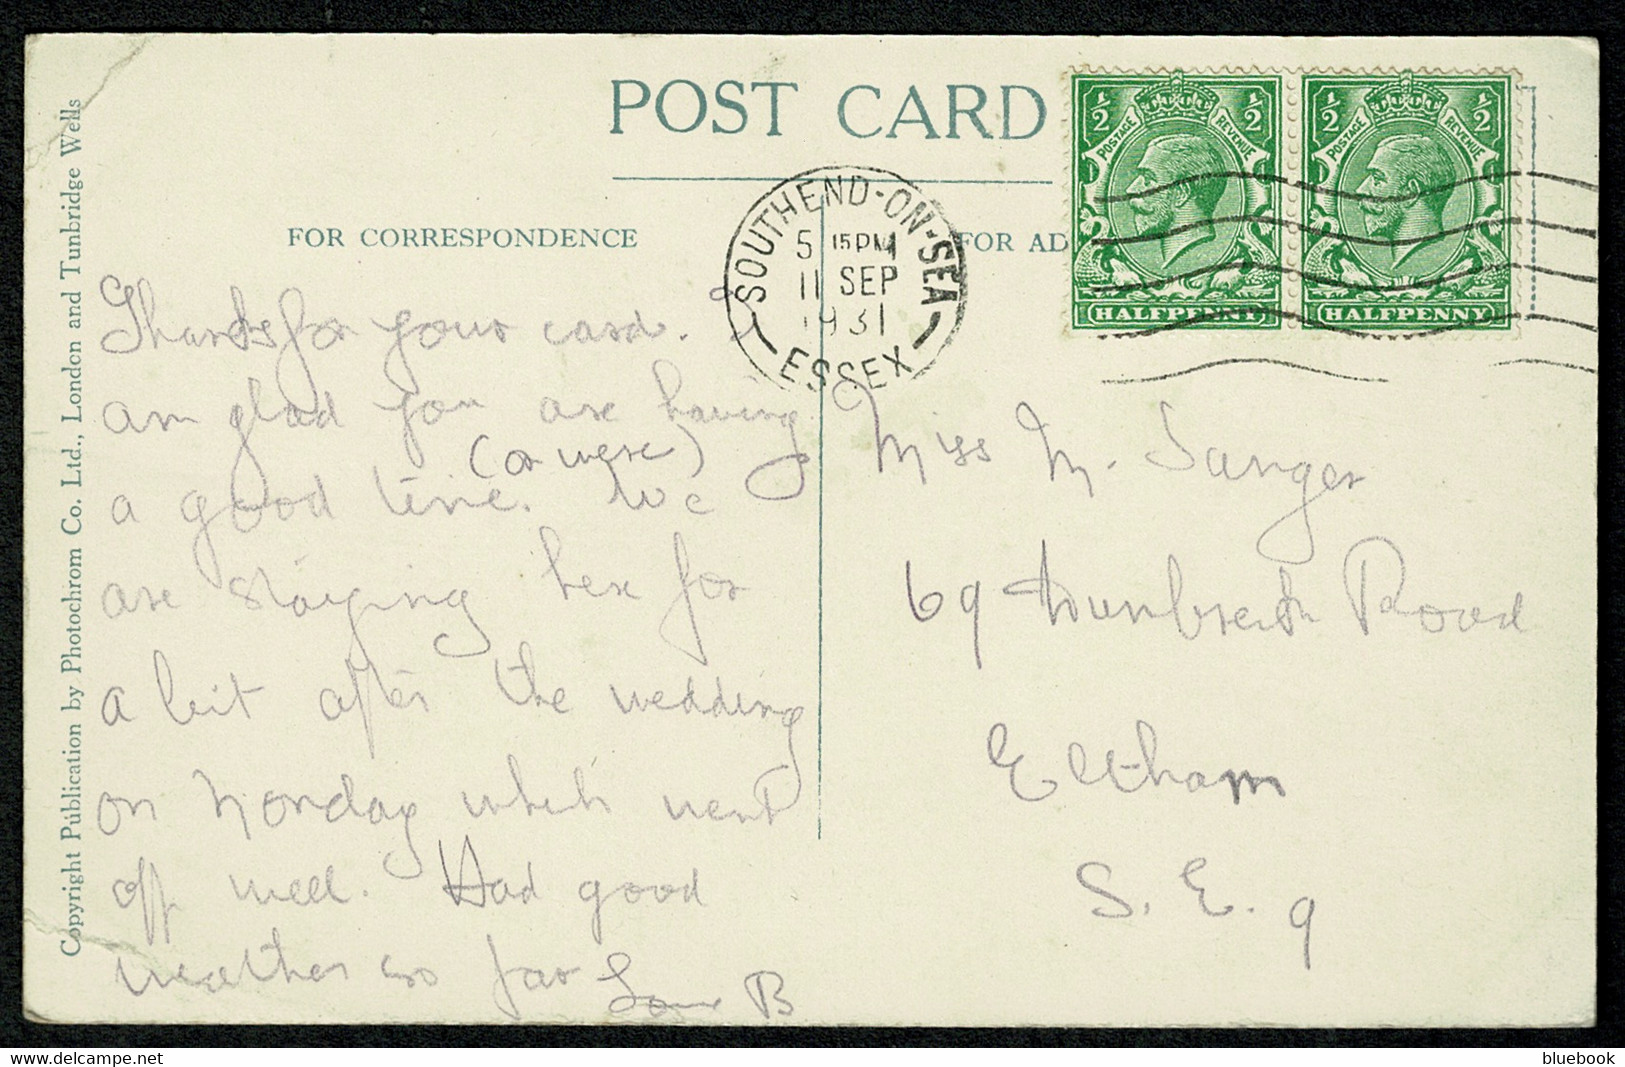 POST CARD
FOR CORRESPONDENCE
FOR AD
Copyright Publication by Photochrom Co. Ltd., London and Tunbridge Wells
SOUTHEND-ON-SEA
5 15 PM
11 SEP
1931
ESSEX
1/2 POSTAGE REVENUE 1/2
HALFPENNY
1/2 POSTAGE REVENUE 1/2
HALFPENNY
Thanks for your card. I
am glad you are having
(or were)
a good time. We
are staying here for
a bit after the wedding
on Monday which went
off well. Had good
weather so far
B
Miss M. Sanger
69 Road
Eltham
S. E. 9
bluebook